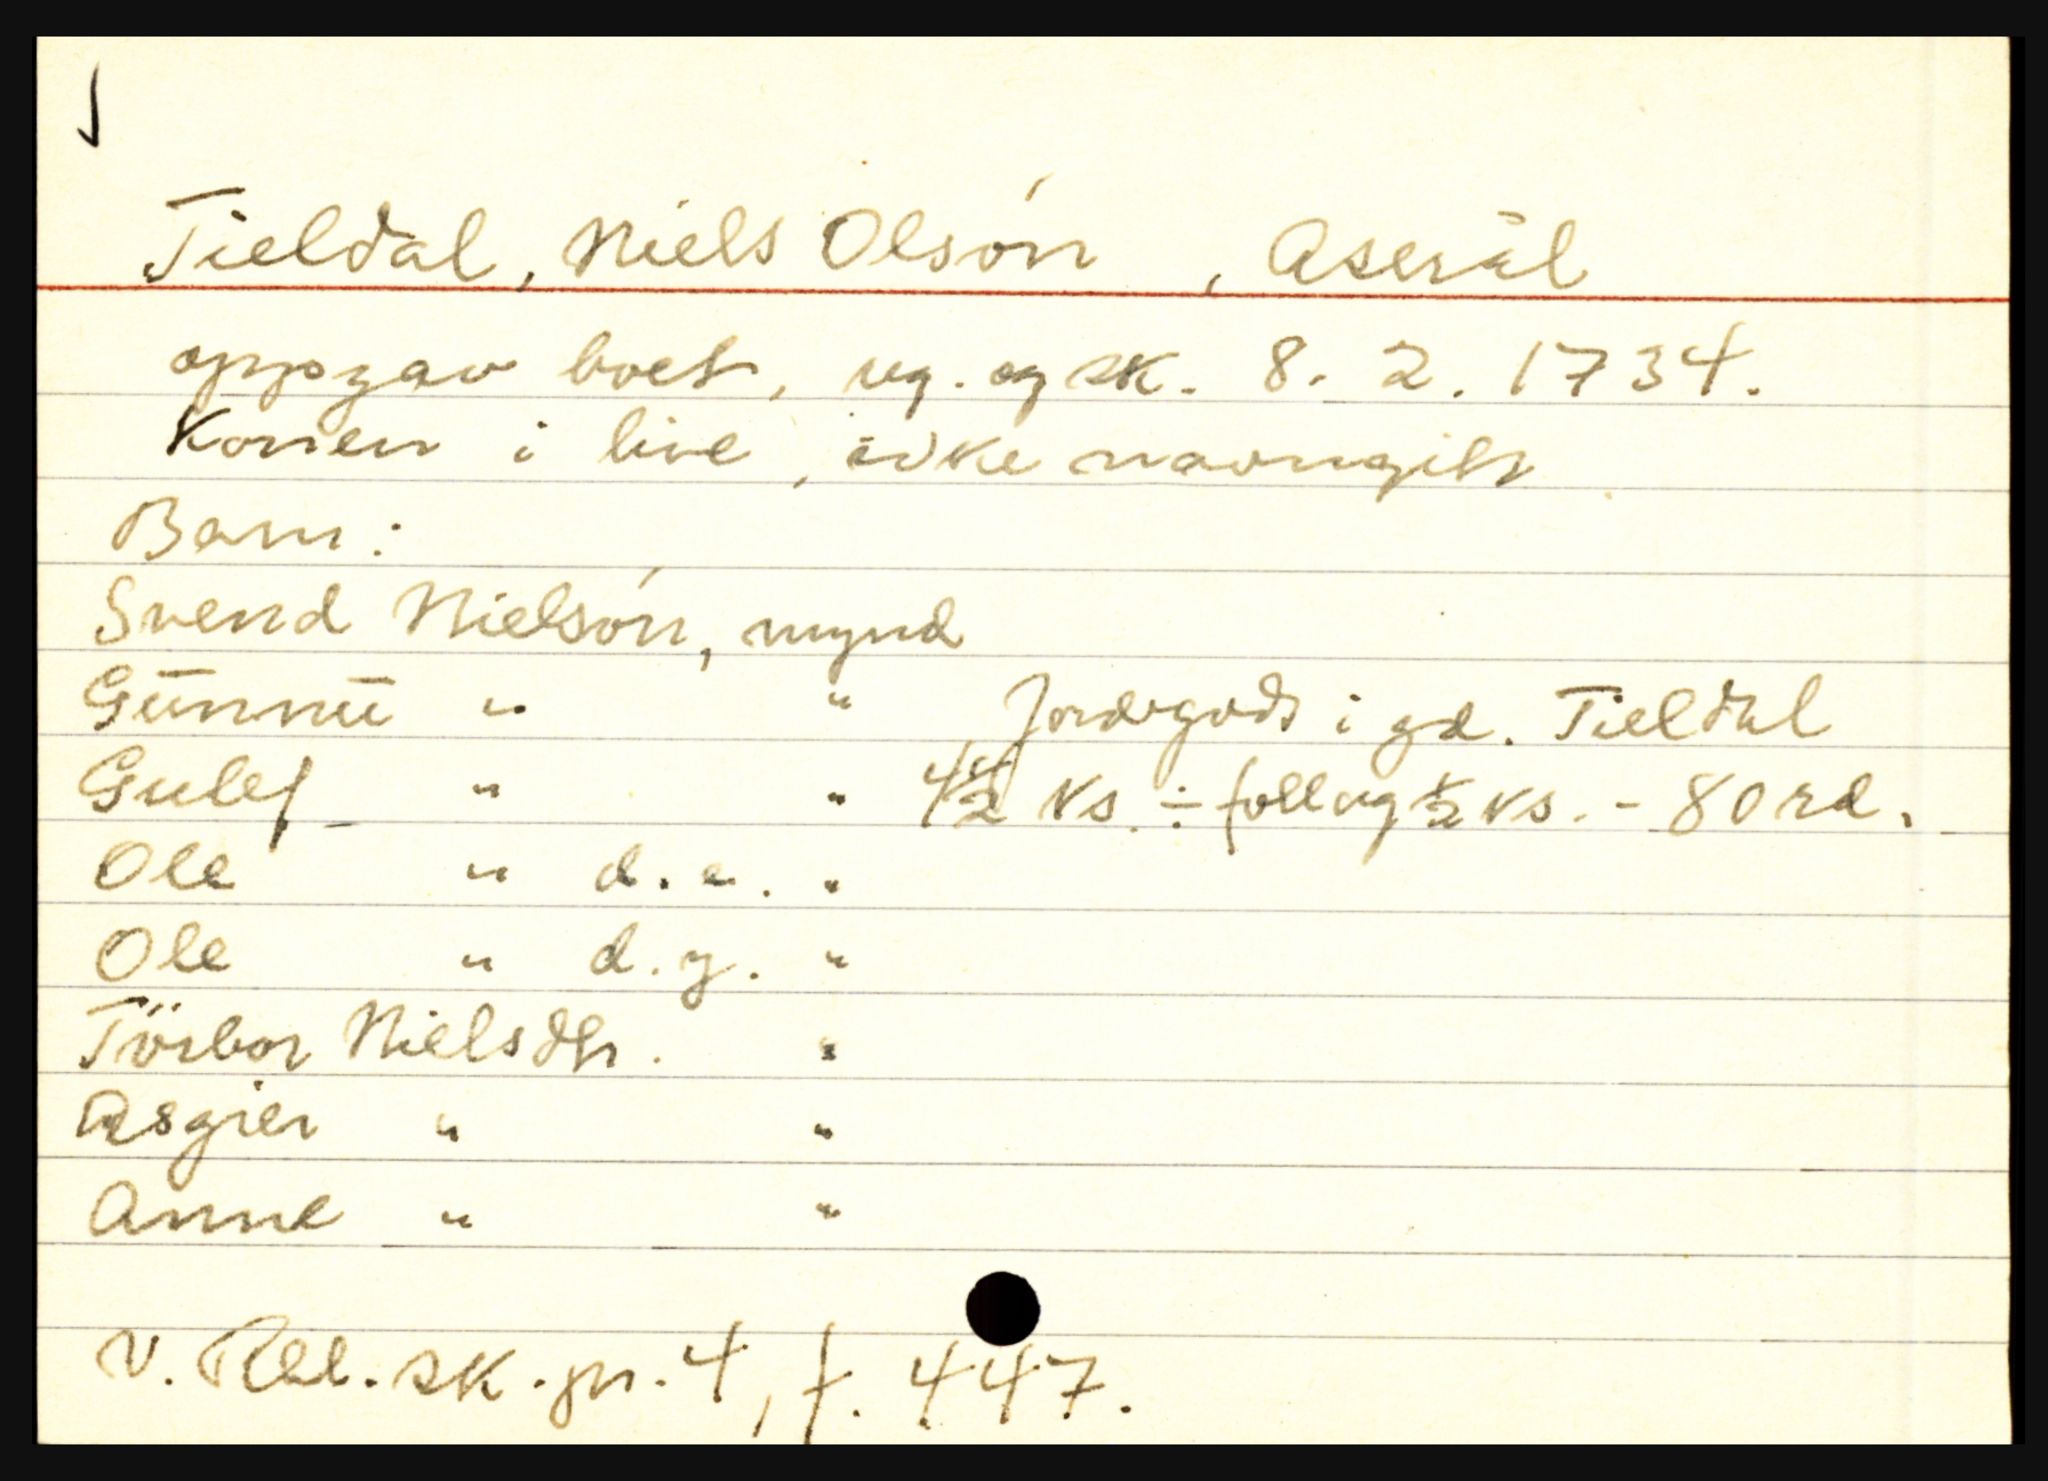 Tieldal, Niels Olsón , Aserål
oppgav boet, reg. og sk. 8. 2. 1734.
Konen i live, ikke navngitt
Barn:
Svend Nielsón, mynd
Gūnnū " " Jordegods i gd. Tieldal
Gulef " " 4 1/2 ks. ÷ follaug 1/2 ks. - 80 rd.
Ole " d.e. "
Ole " d.y. "
Törbor Nielsdtr. "
Asgier " "
Anne " "
V. Rbl. sk.pr. 4, f. 447.